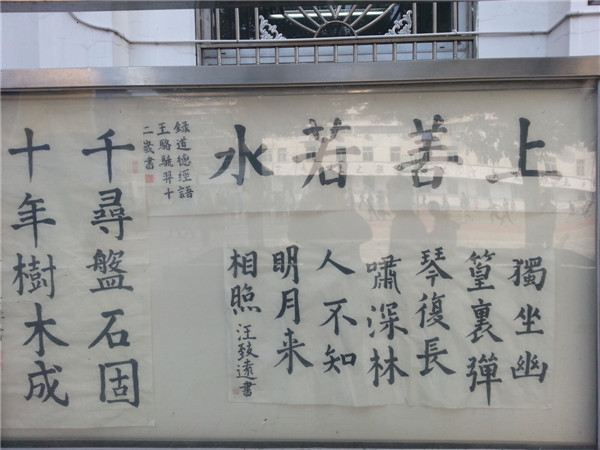 上善若水
錄道德經語
王駱羿十
二歲書
獨坐幽
篁裏彈
琴復長
嘯深林
人不知
明月来
相照
汪致遠書
千尋盤石固
十年樹木成